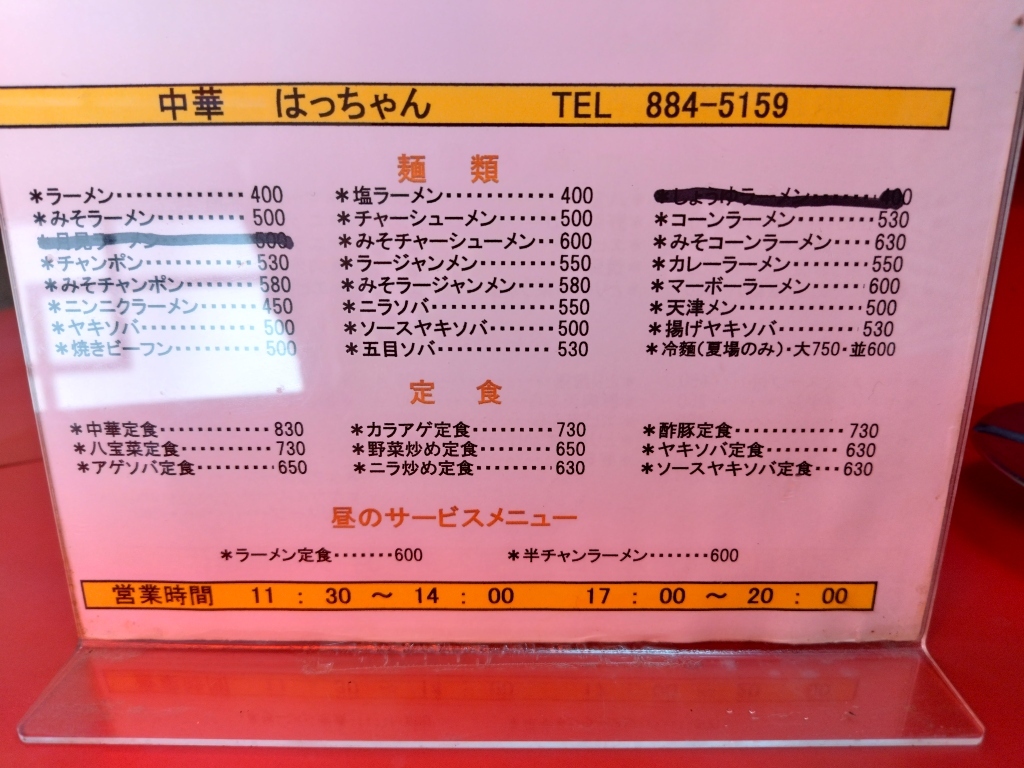 中華 はっちゃん TEL 884-5159
麺 類
*ラーメン・・・・・・・・・・・・・400 *塩ラーメン・・・・・・・・・・・・400 *しょうゆラーメン・・・・・・・400
*みそラーメン・・・・・・・・・500 *チャーシューメン・・・・・・500 *コーンラーメン・・・・・・・・530
*月見ラーメン 500 *みそチャーシューメン・・600 *みそコーンラーメン・・・・630
*チャンポン・・・・・・・・・・・530 *ラージャンメン・・・・・・・・550 *カレーラーメン・・・・・・・・550
*みそチャンポン・・・・・・・580 *みそラージャンメン・・・・580 *マーボーラーメン・・・・・・600
*ニンニクラーメン・・・・・・450 *ニラソバ・・・・・・・・・・・・・550 *天津メン・・・・・・・・・・・・・500
*ヤキソバ・・・・・・・・・・・・・500 *ソースヤキソバ・・・・・・・500 *揚げヤキソバ・・・・・・・・・530
*焼きビーフン・・・・・・・・・500 *五目ソバ・・・・・・・・・・・・・530 *冷麺(夏場のみ)・大750・並600
定 食
*中華定食・・・・・・・・・・・・・830 *カラアゲ定食・・・・・・・・・・730 *酢豚定食・・・・・・・・・・・・・730
*八宝菜定食・・・・・・・・・・・730 *野菜炒め定食・・・・・・・・・650 *ヤキソバ定食・・・・・・・・・630
*アゲソバ定食・・・・・・・・・650 *ニラ炒め定食・・・・・・・・・630 *ソースヤキソバ定食・・・630
昼のサービスメニュー
*ラーメン定食・・・・・・・600 *半チャンラーメン・・・・・・・600
営業時間 11 : 30 ～ 14 : 00 17 : 00 ～ 20 : 00